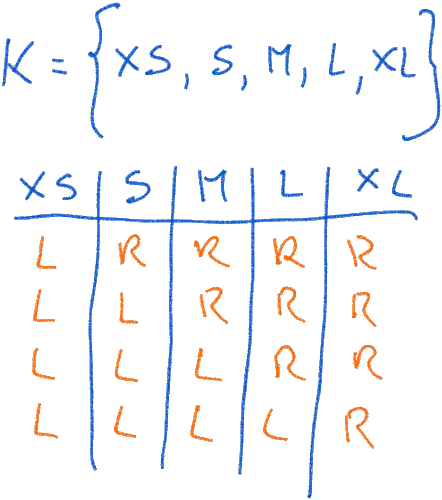 K = { XS, S, M, L, XL }
XS S M L XL
L R R R R
L L R R R
L L L R R
L L L L R